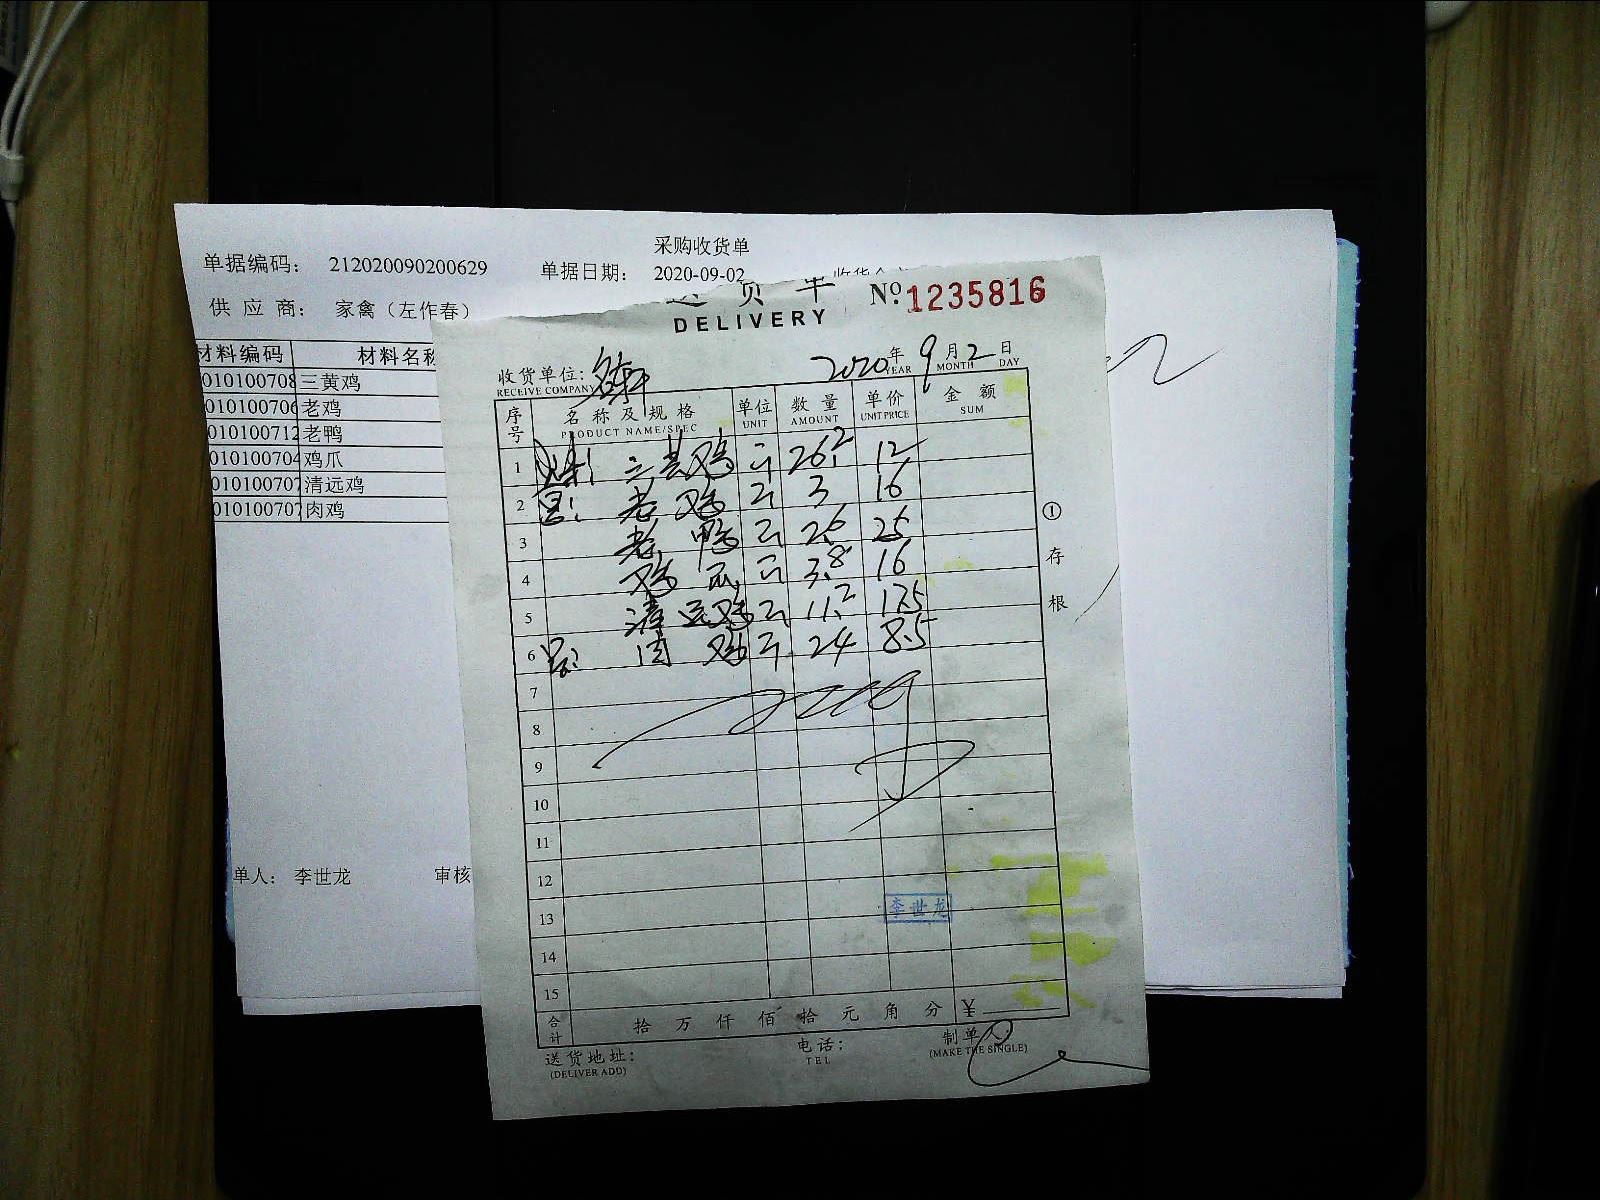 采购收货单
单据编码： 212020090200629 单据日期： 2020-09-02
供 应 商： 家禽（左作春）
材料编码 材料名称
010100708 三黄鸡
010100706 老鸡
010100712 老鸭
010100704 鸡爪
010100707 清远鸡
010100707 肉鸡
单人： 李世龙 审核
送 货 单 No. 1235816
DELIVERY
收货单位：
RECEIVE COMPANY
2020年 9月 2日
YEAR MONTH DAY
序号 名 称 及 规 格 单位 数 量 单价 金 额
PRODUCT NAME/SPEC UNIT AMOUNT UNIT PRICE SUM
1 三黄鸡 斤 26.2 12
2 老鸡 斤 3 16
3 老鸭 斤 25
4 鸡爪 斤 3.8 16
5 清远鸡 斤 11.2 17.5
6 肉鸡 斤 24 8.5
7
8
9
10
11
12
13
李世龙
14
15
合计 拾 万 仟 佰 拾 元 角 分 ¥
送货地址：
(DELIVER ADD)
电话：
TEL
制单人
(MAKE THE SINGLE)
① 存 根